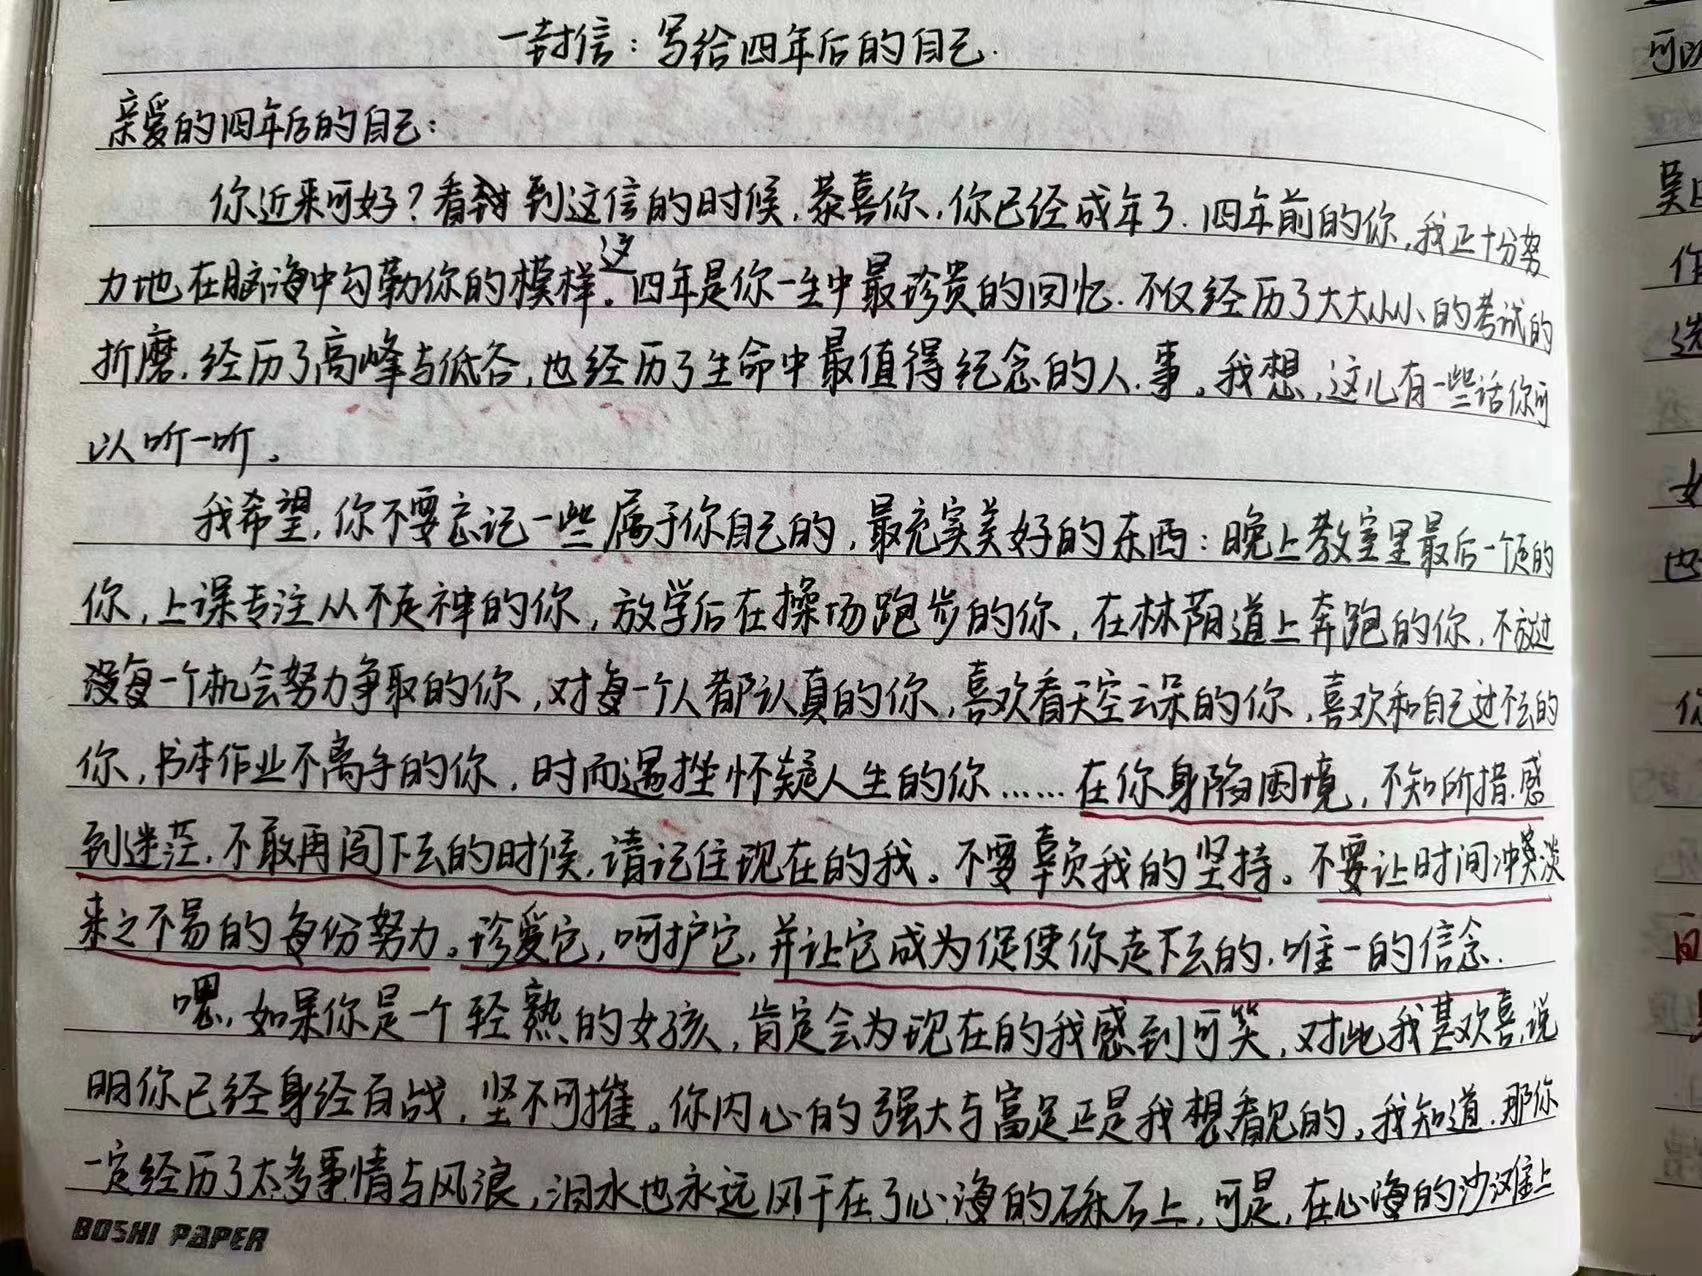 一封信：写给四年后的自己.
亲爱的四年后的自己：
你近来可好？看到这信的时候，恭喜你，你已经成年了. 四年前的你，我正十分努
力地在脑海中勾勒你的模样。这四年是你一生中最珍贵的回忆. 不仅经历了大大小小的考试的
折磨. 经历了高峰与低谷，也经历了生命中最值得纪念的人.事。我想，这儿有一些话你可
以听一听。
我希望，你不要忘记一些属于你自己的，最充实美好的东西：晚上教室里最后一个走的
你，上课专注从不走神的你，放学后在操场跑步的你，在林荫道上奔跑的你，不放过
每一个机会努力争取的你，对每一个人都认真的你，喜欢看天空云朵的你，喜欢和自己过不去的
你，书本作业不离手的你，时而遇挫怀疑人生的你……在你身陷困境，不知所措.感
到迷茫，不敢再闯下去的时候，请记住现在的我。不要辜负我的坚持。不要让时间冲淡
来之不易的每份努力。珍爱它，呵护它，并让它成为促使你走下去的，唯一的信念.
嘿，如果你是一个轻熟的女孩，肯定会为现在的我感到可笑，对此我甚欢喜，说
明你已经身经百战，坚不可摧。你内心的强大与富足正是我想看见的，我知道，那你
一定经历了太多事情与风浪，泪水也永远风干在了心海的砾石上，可是，在心海的沙滩上
BOSHI PAPER